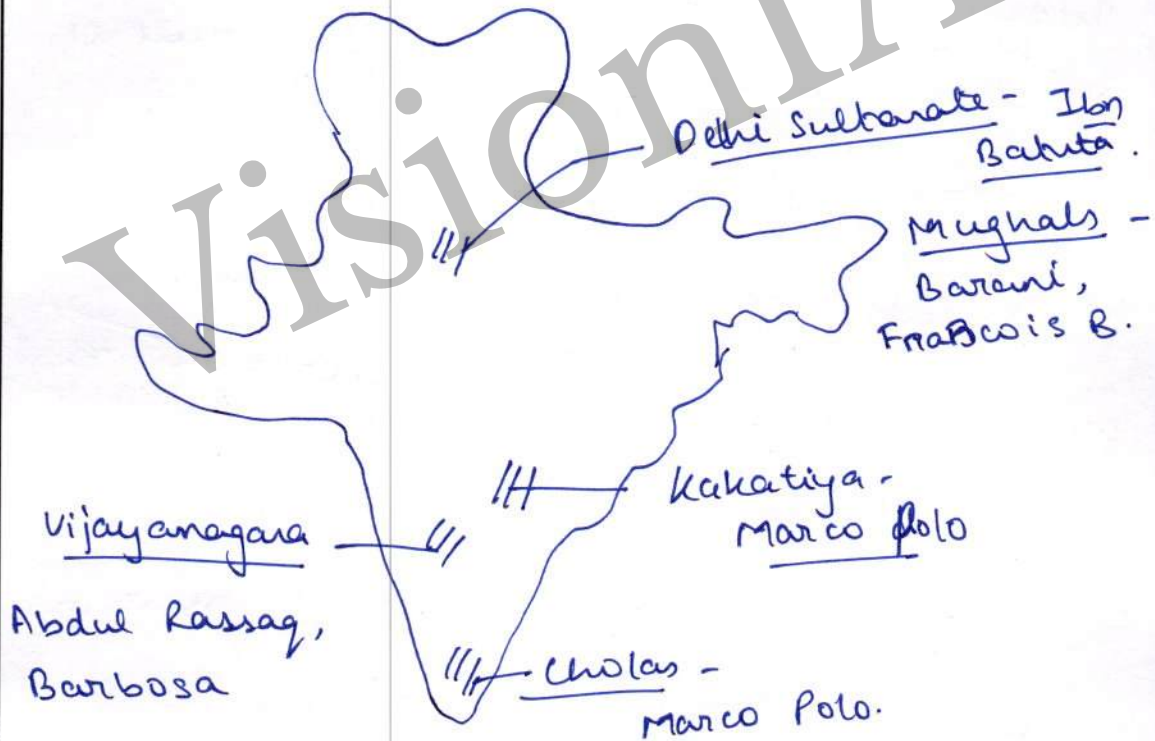 Delhi Sultanate - Ibn
Batuta.
Mughals -
Barani,
Francois B.
Kakatiya -
Marco Polo
Vijayanagara
Abdul Rassaq,
Barbosa
Cholas -
Marco Polo.
VisionIA